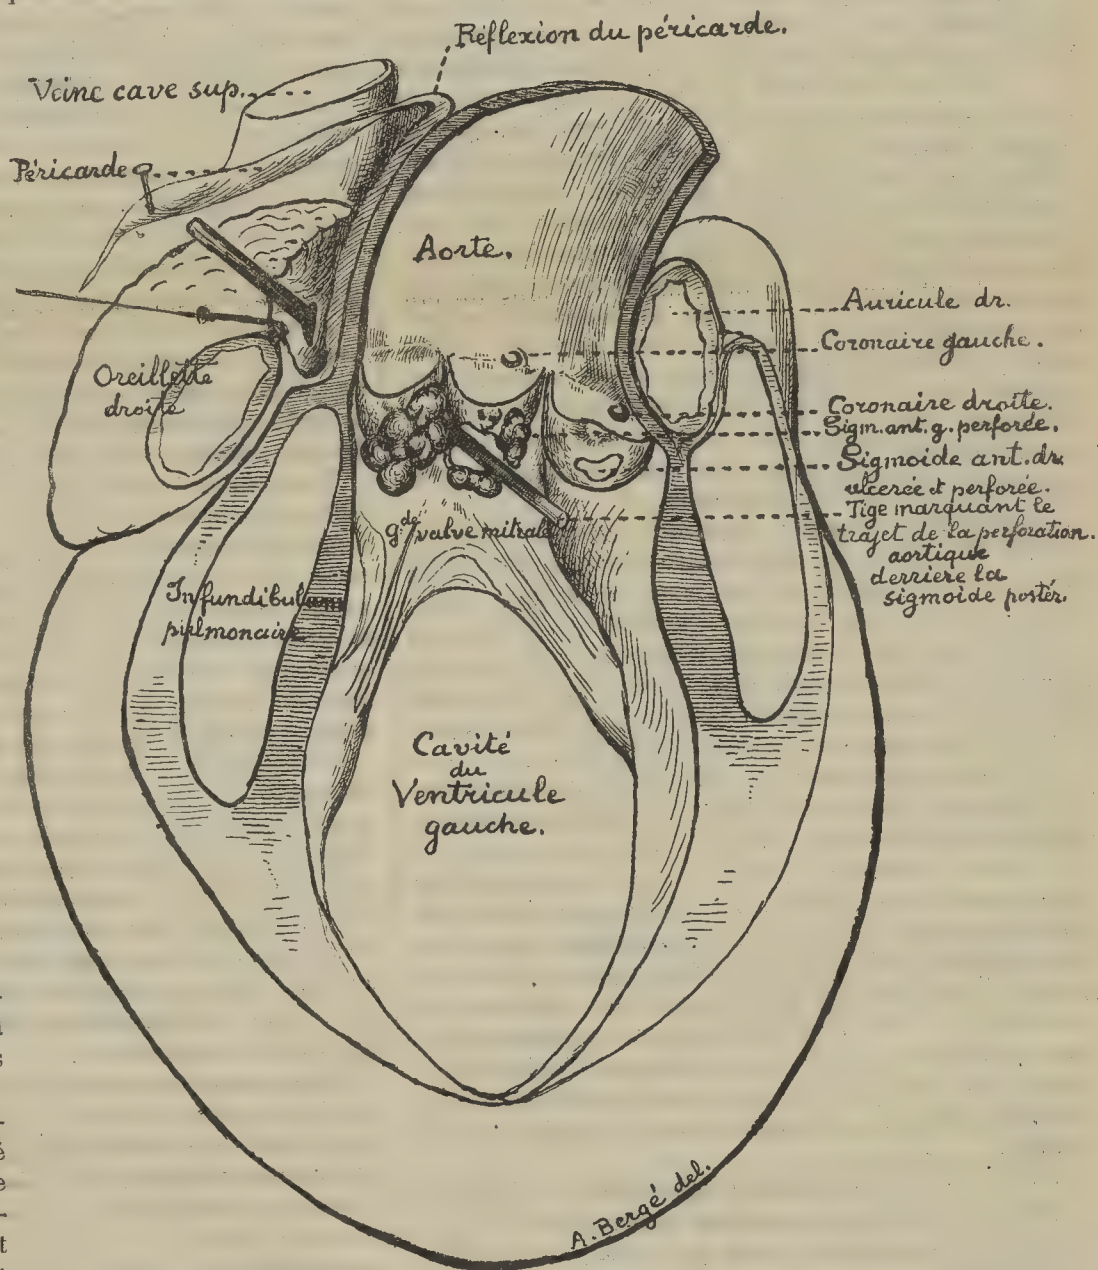 Réflexion du péricarde.
Veine cave sup.
Péricarde
Aorte.
Auricule dr.
Coronaire gauche.
Oreillette
droite
Coronaire droite.
Sigm. ant. g. perforée.
Sigmoïde ant. dr.
ulcerée et perforée.
Tige marquant le
trajet de la perforation
aortique
derriere la
sigmoïde postér.
gde valve mitrale
Infundibulum
pulmonaire
Cavité
du
Ventricule
gauche.
A. Bergé del.